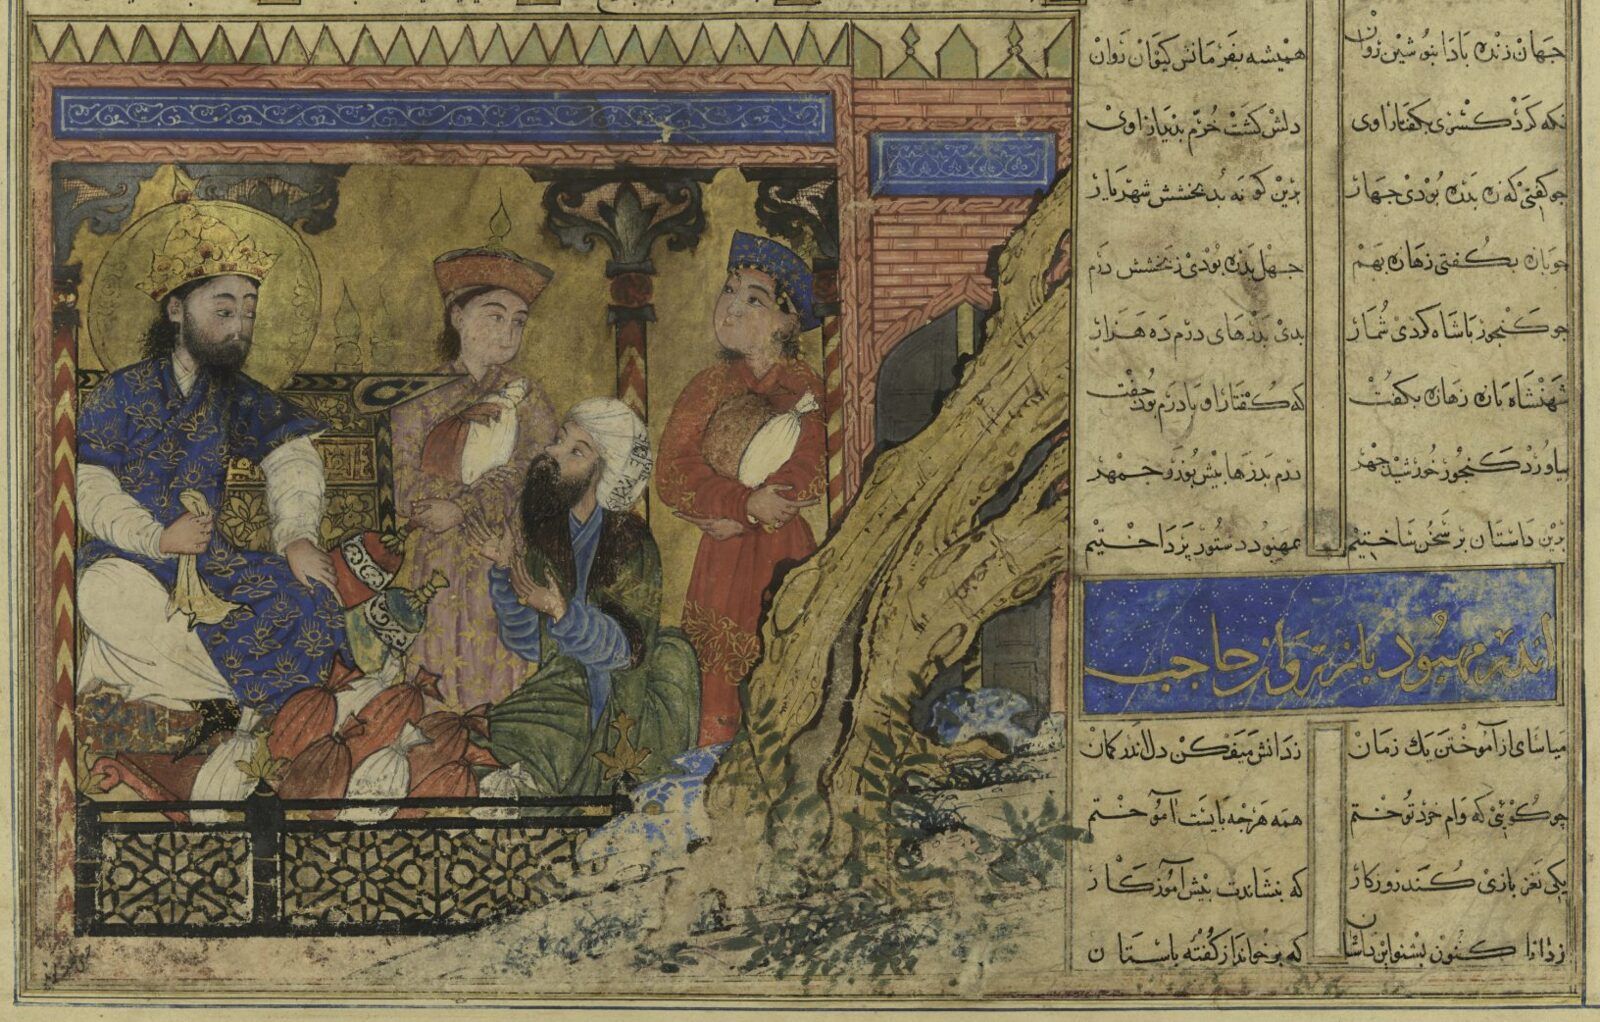 جهان زنده باذا بنوشین روان همیشه بفرمانش کیوان روان
نکه کرد کسری بکفتار اوی دلش کشت خرم بدیدار اوی
جو کفتی که زه بدره بوذی جهار برین کونه بد بخشش شهریار
جو با زه بکفتی زهازه بهم جهل بدره بوذی ز بخشش درم
جو کنجور با شاه کردی شمار بدی بدرهای درم ده هزار
شهنشاه با زه زهازه بکفت که کفتار او با درم بوذ جفت
بیاورد کنجور خورشید جهر درم بدرها بیش بوزرجمهر
برین داستان بر سخن ساختیم بمهبوذ دستور برداختیم
اندر مهبوذ با زروان حاجب
میاسای از آموختن یک زمان ز دانش میفکن دل اندر کمان
جو کوئی که وام خرذ توختم همه هرجه بایست آموختم
یکی نغز بازی کند روزکار که بنشاندت بیش آموزکار
ز دانا کنون بشنو این داستان که برخواند از کفته باستان